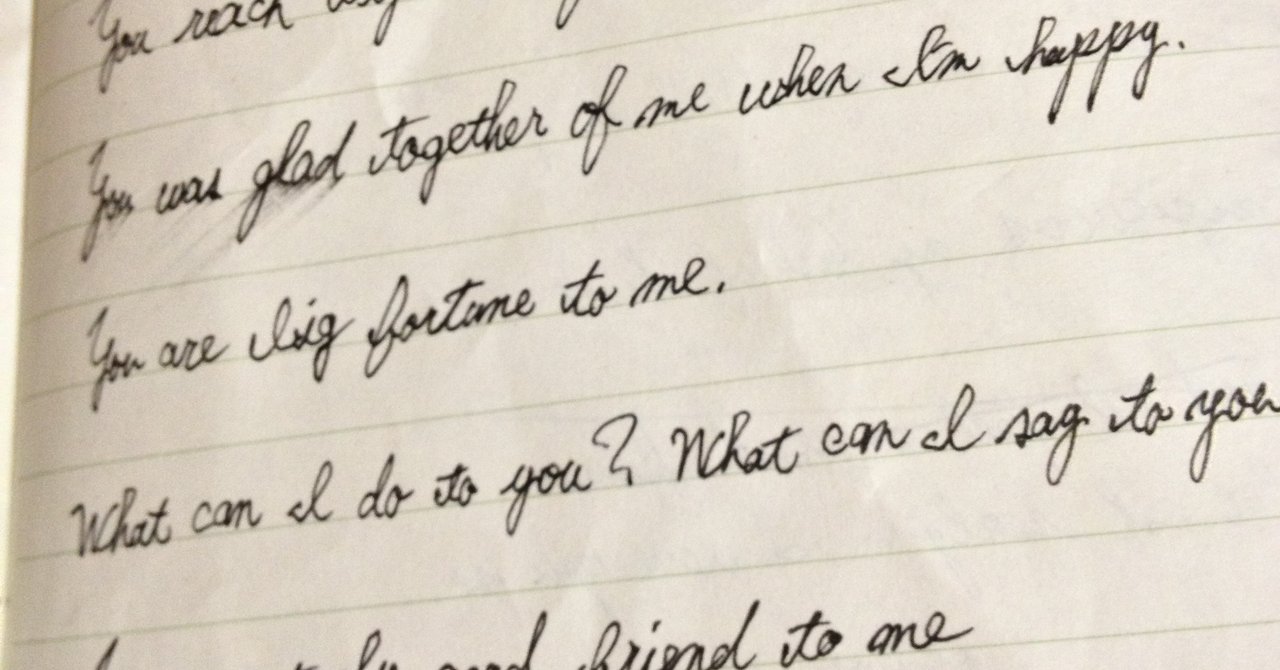 You reach
You was glad together of me when I'm happy.
You are big fortune to me.
What can I do to you? What can I say to you
good friend to me